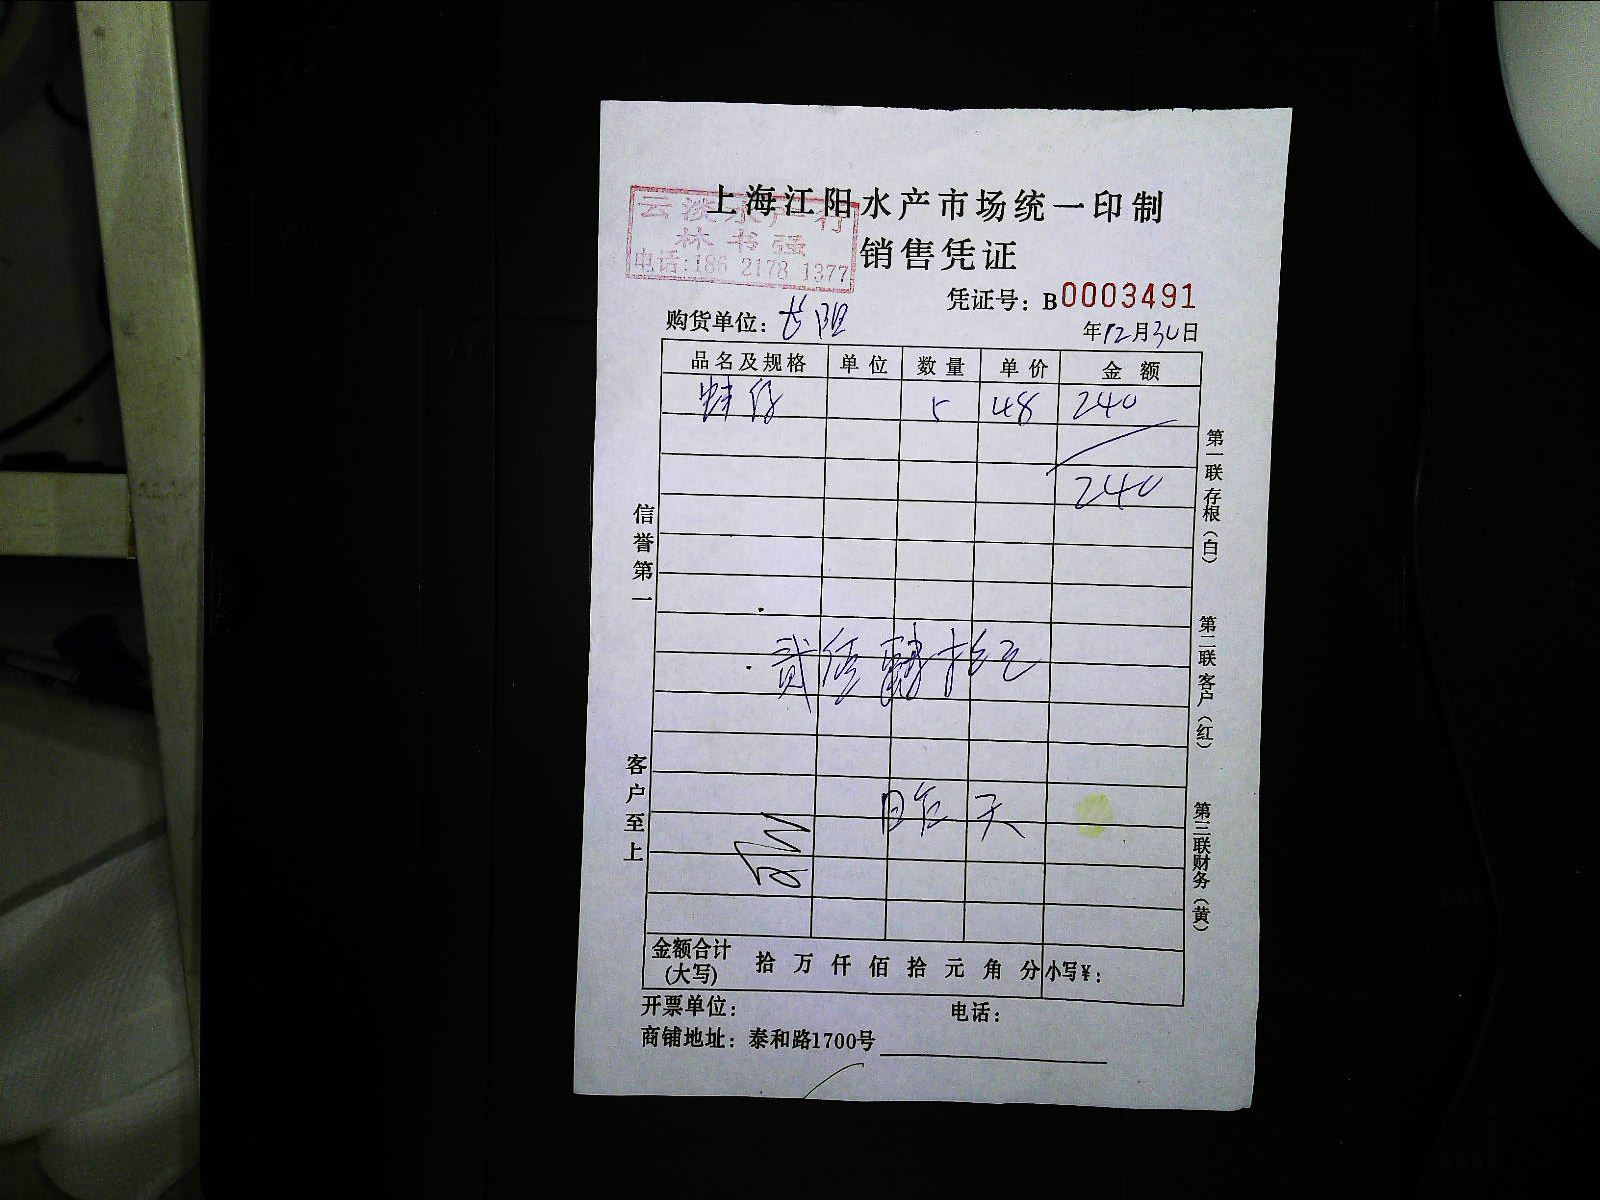 上海江阳水产市场统一印制
云淡水产行
林书强
电话:186 2178 1377
销售凭证
凭证号：B0003491
购货单位：长阳
年12月30日
品名及规格 单位 数量 单价 金额
蚌仔 5 48 240
240
贰佰肆拾元
昨天
金额合计(大写) 拾 万 仟 佰 拾 元 角 分 小写¥：
开票单位： 电话：
商铺地址：泰和路1700号
信誉第一 客户至上
第一联存根（白） 第二联客户（红） 第三联财务（黄）